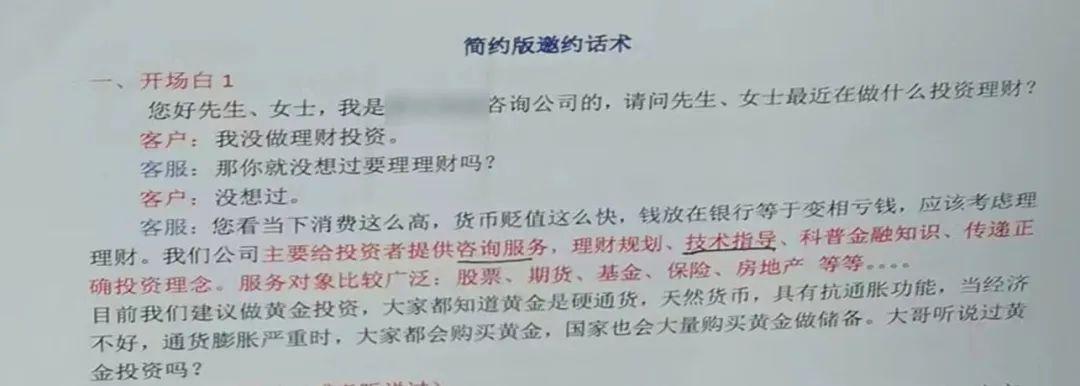 简约版邀约话术
一、开场白 1
您好先生、女士，我是咨询公司的，请问先生、女士最近在做什么投资理财？
客户：我没做理财投资。
客服：那你就没想过要理理财吗？
客户：没想过。
客服：您看当下消费这么高，货币贬值这么快，钱放在银行等于变相亏钱，应该考虑理
理财。我们公司主要给投资者提供咨询服务，理财规划、技术指导、科普金融知识、传递正
确投资理念。服务对象比较广泛：股票、期货、基金、保险、房地产 等等。。。。
目前我们建议做黄金投资，大家都知道黄金是硬通货，天然货币，具有抗通胀功能，当经济
不好，通货膨胀严重时，大家都会购买黄金，国家也会大量购买黄金做储备。大哥听说过黄
金投资吗？